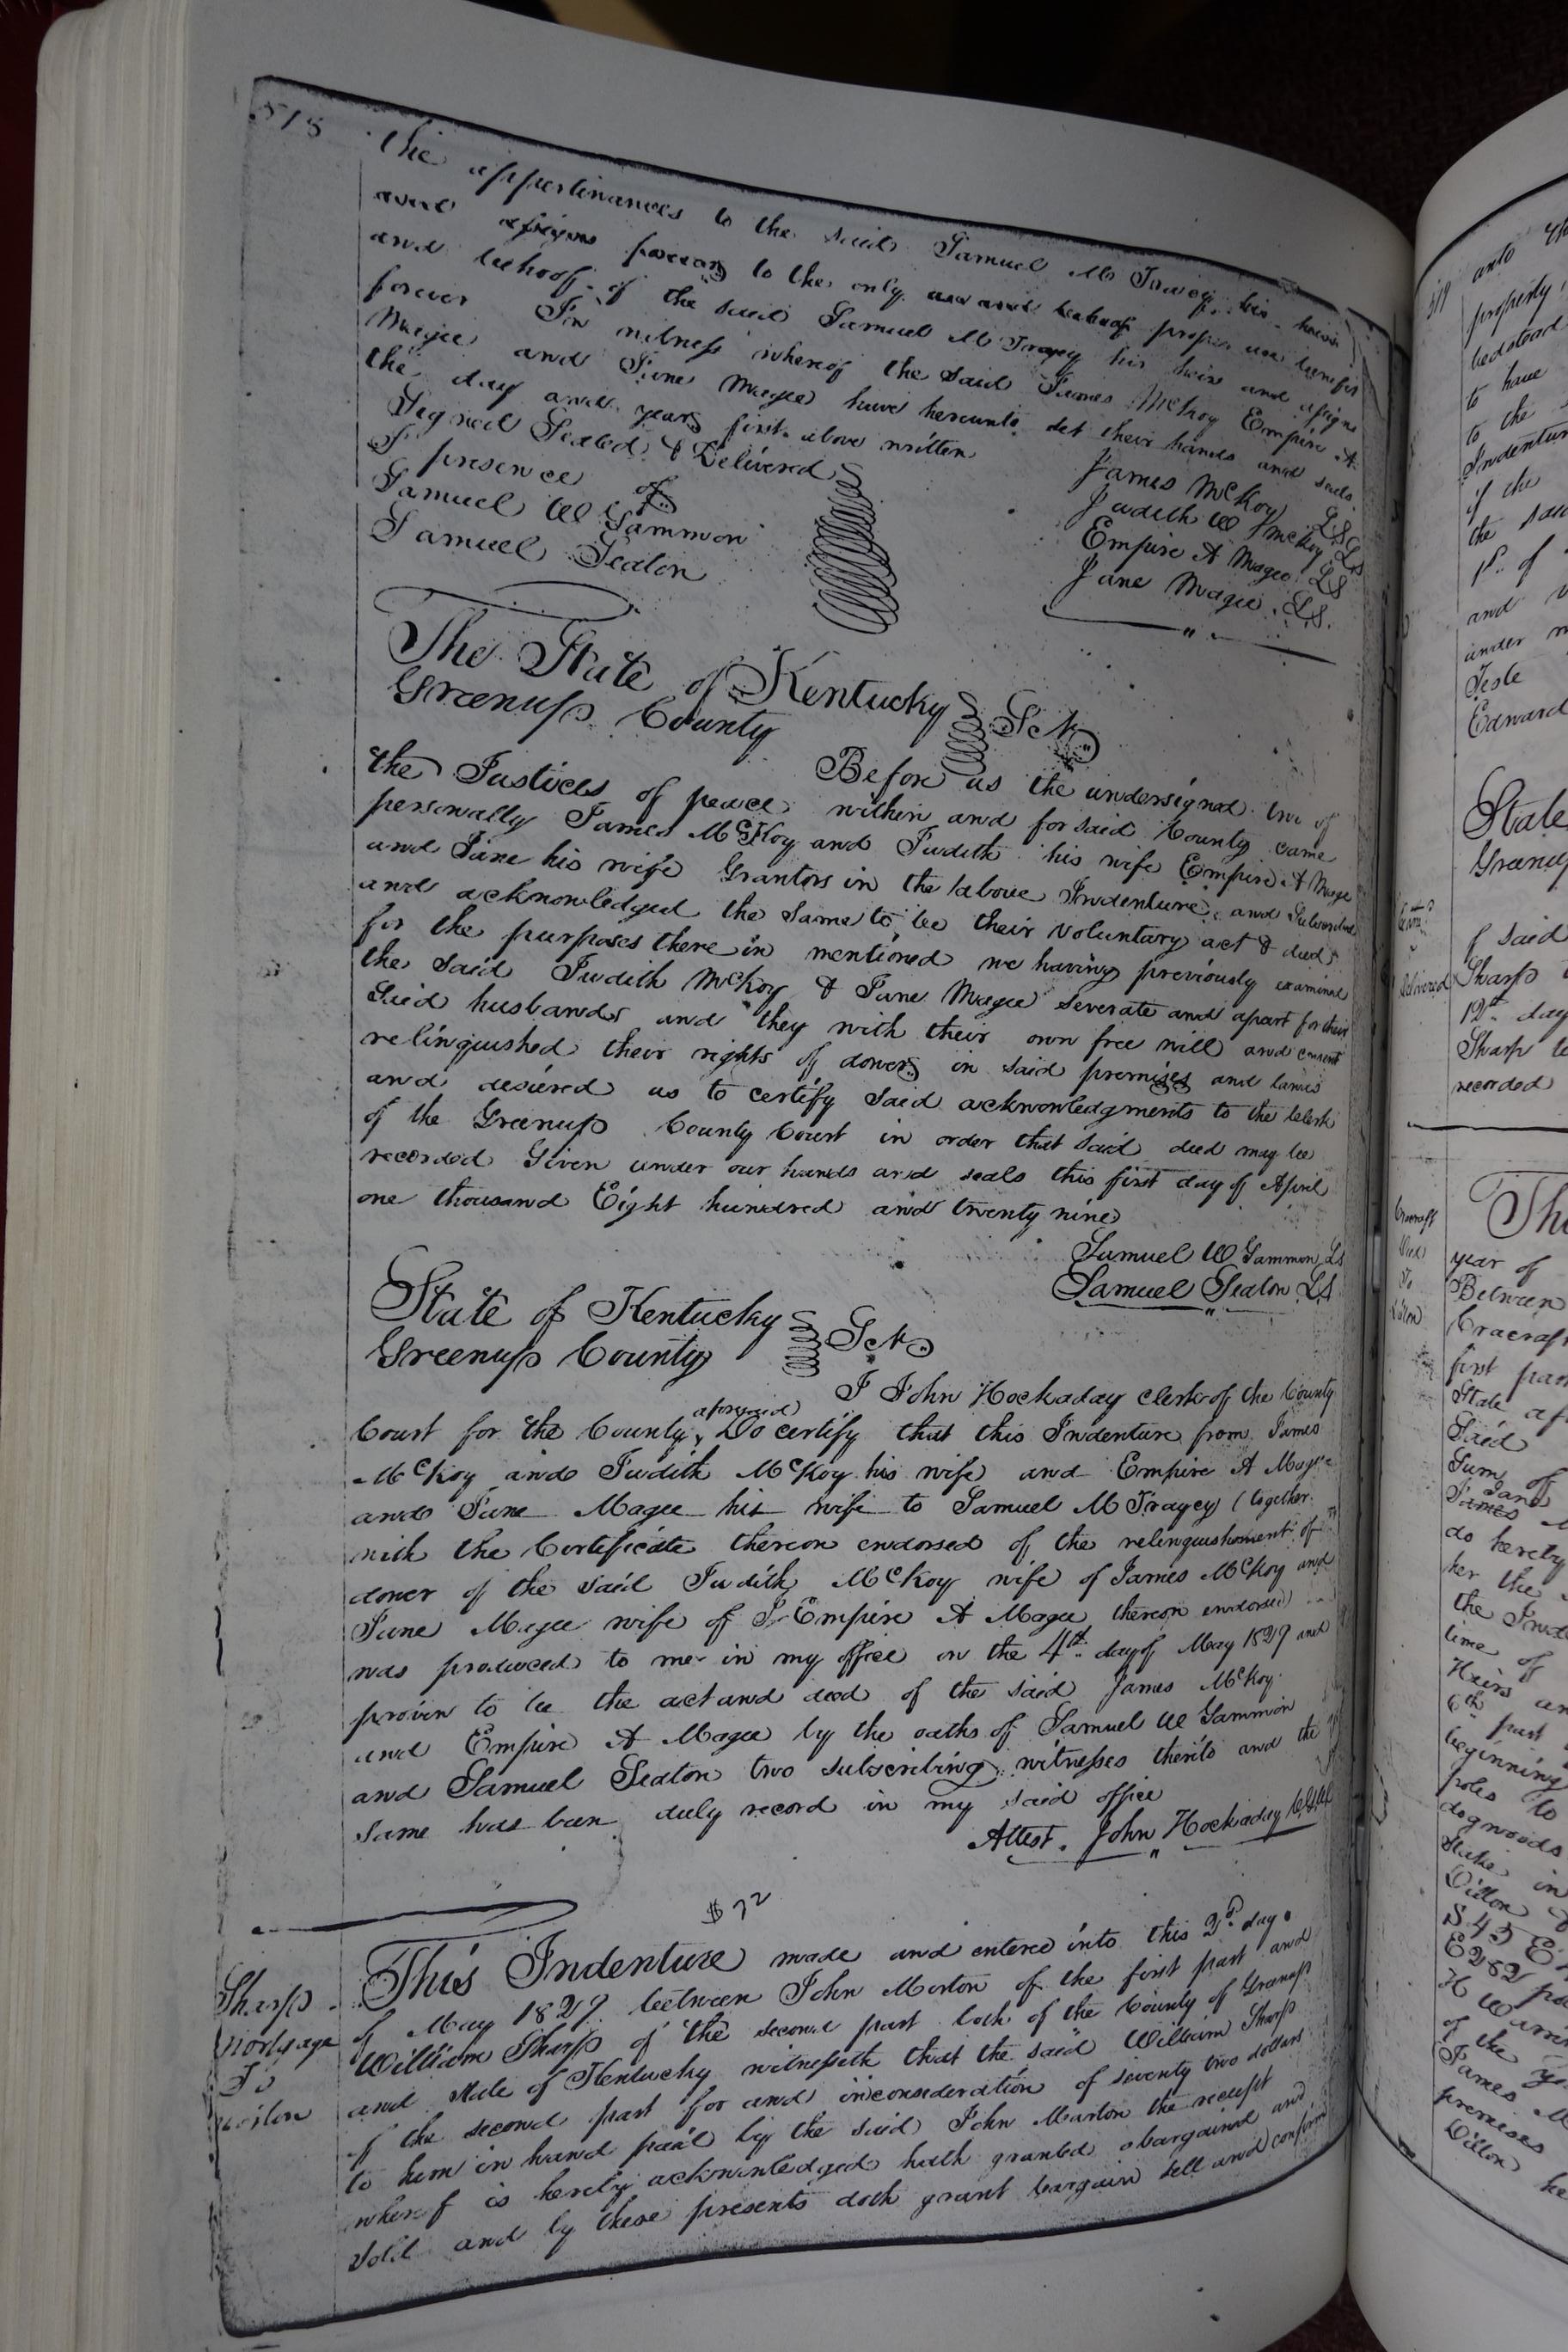 518
the appertinances to the said Samuel M Tracy, his heirs
and assigns forever to the only use and behoof proper use benefit
and behoof of the said Samuel M Tracy his heirs and assigns
forever In witness whereof the said James McKoy Empire A
Magee and Jane Magee have hereunto set their hands and seals
the day and year first above written
Signed Sealed & Delivered
In presence of
Samuel W Gammon
Samuel Seaton
James McKoy LS
Judith W McKoy LS
Empire A Magee LS
Jane Magee LS.
The State of Kentucky
Greenup County Sct
Before us the undersigned two of
the Justices of peace within and for said County came
personally James McKoy and Judith his wife Empire A Magee
and Jane his wife Grantors in the above Indenture, and Subscribed
and acknowledged the same to be their voluntary act & deed
for the purposes there in mentioned we having previously examined
the said Judith McKoy & Jane Magee severate and apart for their
said husbands and they with their own free will and consent
relinquished their rights of dower in said premises and lands
and desired us to certify said acknowledgments to the Clerk
of the Greenup County Court in order that said deed may be
recorded Given under our hands and seals this first day of April
one thousand Eight hundred and twenty nine
Samuel W Gammon LS
Samuel Seaton LS
State of Kentucky
Greenup County Sct
I John Hockaday clerk of the County
Court for the County aforesaid Do certify that this Indenture from James
McKoy and Judith McKoy his wife and Empire A Magee
and Jane Magee his wife to Samuel M Tracey (together
with the Certificate thereon endorsed of the relinquishment of
doner of the said Judith McKoy wife of James McKoy and
Jane Magee wife of Empire A Magee thereon endorsed)
was produced to me in my office on the 4th day of May 1829 and
proven to be the act and deed of the said James McKoy
and Empire A Magee by the oaths of Samuel W Gammon
and Samuel Seaton two subscribing witnesses thereto and the
same has been duly record in my said office
Attest. John Hockaday
$72
Sharp
Mortgage
To
This Indenture made and entered into this 2d day
of May 1829 between John Morton of the first part and
William Sharp of the second part both of the County of Greenup
and State of Kentucky witnesseth that the said William Sharp
of the second part for and inconsideration of seventy two dollars
to him in hand paid by the said John Morton the receipt
whereof is hereby acknowledged hath granted bargained and
sold and by these presents doth grant bargain sell and confirm
519
unto
property
bedstead
to have
to the
Indenture
if the
the said
pt. of
and
under
Teste
Edward
State
Greenup
of said
Delivered
Sharp
12th day
Sharp
recorded
Cracraft
Deed
To
year of
Between
Cracraft
first part
State
Said
Sum of
James
do hereby
her the
the
time of
Heirs
6th part
beginning
poles to
dogwoods
Stake in
Dillon
S 45 E
E 282
H
of the
James M
premises
Dillon